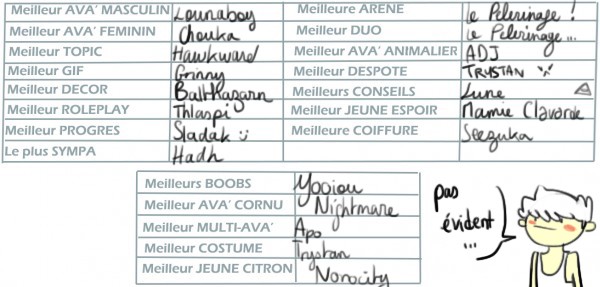 Meilleur AVA' MASCULIN Lounaboy
Meilleur AVA' FEMININ Chouka
Meilleur TOPIC Hawkward
Meilleur GIF Grinny
Meilleur DECOR Balthazarn
Meilleur ROLEPLAY Thlaspi
Meilleur PROGRES Sladak :)
Le plus SYMPA Hadh
Meilleure ARENE Le Pelerinage !
Meilleur DUO Le Pelerinage...
Meilleur AVA' ANIMALIER ADJ
Meilleur DESPOTE TRYSTAN
Meilleurs CONSEILS Lune
Meilleur JEUNE ESPOIR Mamie Clavarde
Meilleure COIFFURE Seezuka
Meilleurs BOOBS Yooiou
Meilleur AVA' CORNU Nightmare
Meilleur MULTI-AVA' Apo
Meilleur COSTUME Trystan
Meilleur JEUNE CITRON Norocity
pas
évident
...